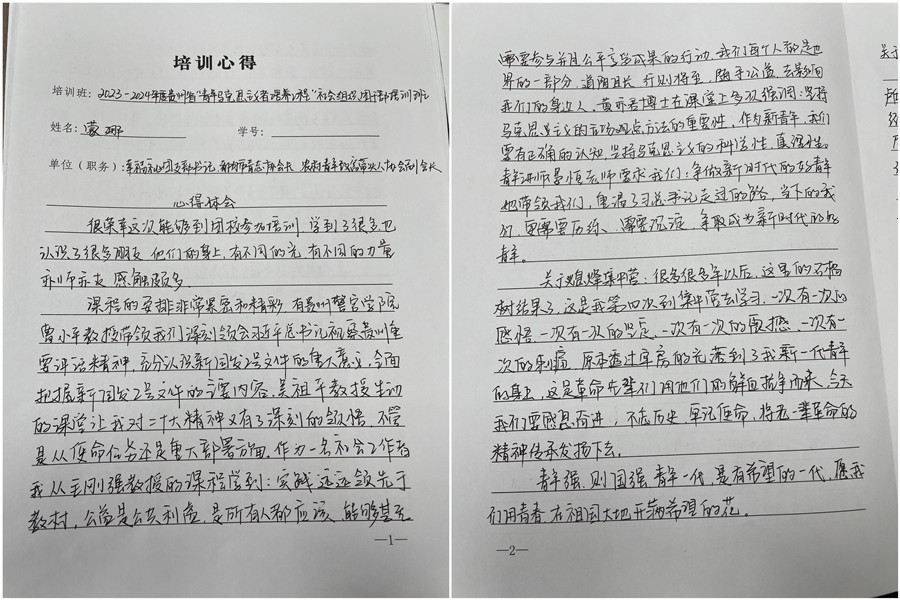 培训心得
培训班：2023-2024年度贵州省"青年马克思主义者培养工程"社会组织、团干部培训班
姓名：蒙娜
学号：
单位（职务）：幸福社区团支部书记、 青志协会长 农村青年致富带头人协会副会长
心得体会
很荣幸这次能够到团校参加培训，学到了很多也
认识了很多朋友，他们的身上，有不同的光，有不同的力量
亦师亦友，感触颇多。
课程的安排非常紧密和精彩，有贵州警官学院
曾小平教授带领我们深刻领会习近平总书记视察贵州重
要讲话精神，充分认识新国发2号文件的重大意义，全面
把握新国发2号文件的主要内容，吴祖平教授生动
的课堂让我对二十大精神又有了深刻的领悟，不管
是从使命任务还是重大部署方面。作为一名社会工作者
我从毛刚强教授的课程学到：实践远远领先于
教材，公益是公共利益，是所有人都应该、能够甚至
需要参与并且公平享受成果的行动，我们每个人都是世
界的一部分，道阻且长，行则将至，随手公益，去影响
我们的身边人，黄亦君博士在课堂上多次强调：坚持
马克思主义的立场观点方法的重要性，作为新青年，我们
要有正确的认知，坚持马克思主义的科学性，真理性。
青年讲师景恒老师要求我们：争做新时代的好青年
她带领我们，重温了习总书记走过的路，当下的我
们，更需要历练、需要沉淀，争取成为新时代的好
青年。
关于息烽集中营：很多很多年以后，这里的石榴
树结果了，这是我第四次到集中营去学习，一次有一次的
感悟，一次有一次的坚定，一次有一次的震撼，一次有一
次的刺痛，原来透过牢房的光落到了我新一代青年
的身上，这是革命先辈们用他们的鲜血抗争而来，今天
我们要感恩奋进，不忘历史，牢记使命，将老一辈革命的
精神传承发扬下去。
青年强，则国强，青年一代，是有希望的一代，愿我
们用青春，在祖国大地开满希望的花。
—1—
—2—
关于